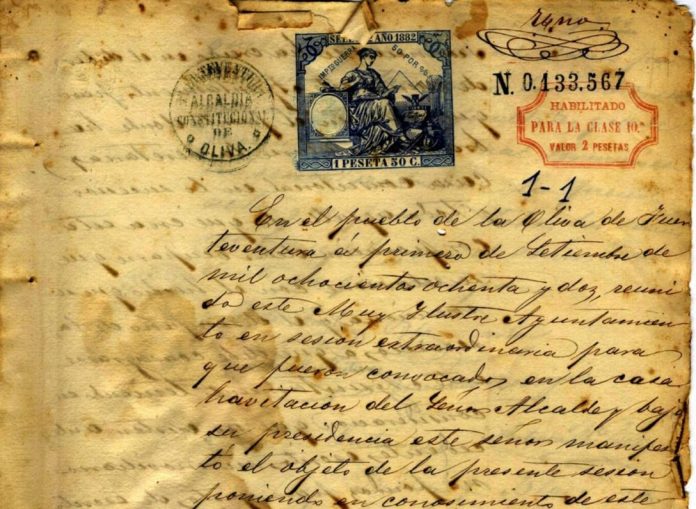 SELLO 10º AÑO 1882
IMPTO GUERRA 50 POR %
1 PESETA 50 C.
FUERTEVENTURA
ALCALDIA
CONSTITUCIONAL
DE
OLIVA.
N. 0.133.567
HABILITADO
PARA LA CLASE 10.ª
VALOR 2 PESETAS
1-1
En el pueblo de la Oliva de Fuer
teventura a primero de Setiembre de
mil ochocientos ochenta y dos, reuni
do este Muy Ilustre Ayuntamien
to en sesion extraordinaria para
que fueron convocados en la casa
havitacion del Señor Alcalde y bajo
su presidencia este señor manifes
tó el objeto de la presente sesion
poniendo en conosimiento de este